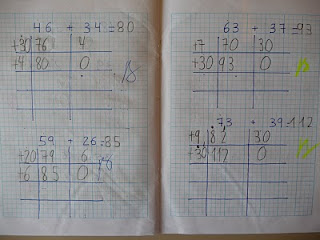 46 + 34 = 80
+30 76 4
+4 80 0
59 + 26 = 85
+20 79 6
+6 85 0
63 + 37 = 93
+7 70 30
+30 93 0
73 + 39 = 112
+9 82 30
+30 112 0